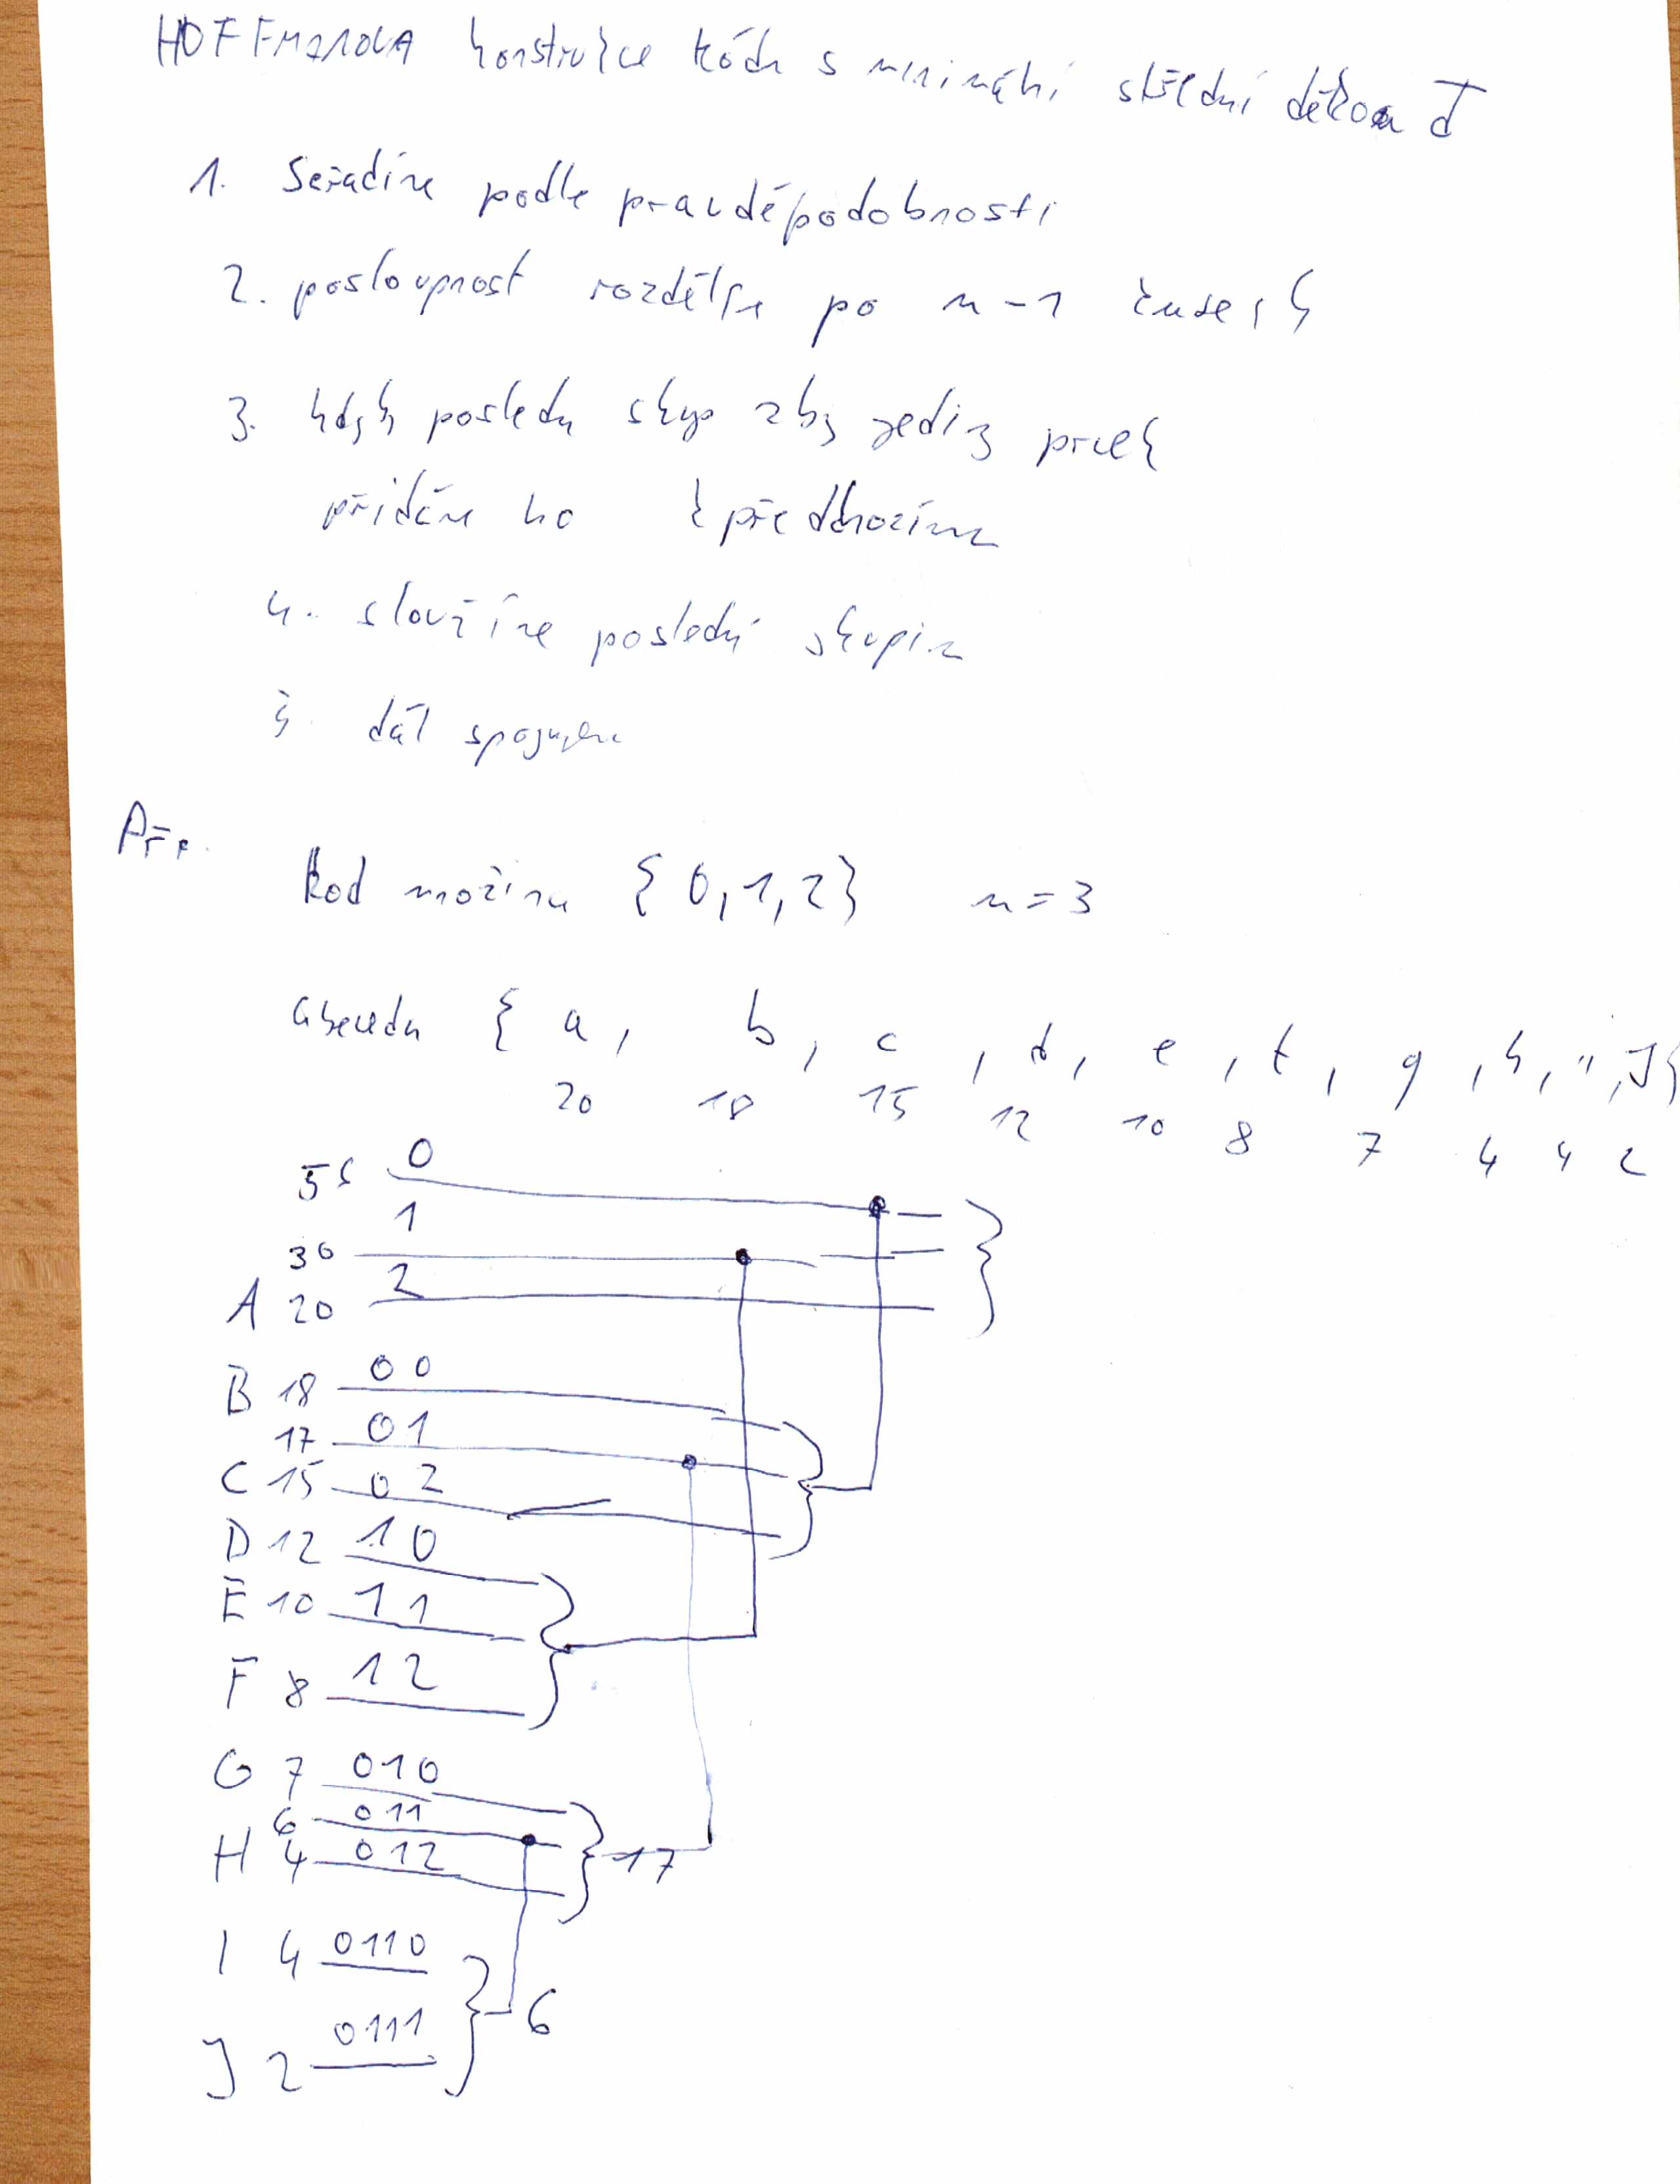 HOFFMANOVA konstrukce kódu s minimální střední délkou d̄
1. Seřadíme podle pravděpodobnosti
2. posloupnost rozdělíme po n-1 znacích
3. když poslední skup zby jediný prvek
přidáme ho k předchozím
4. sloučíme poslední skupin
5. dál spojujeme
Př.
kod množina {0,1,2} n=3
abeceda { a, b, c, d, e, f, g, h, i, J}
20 18 15 12 10 8 7 4 4 2
0
1
30
2
A 20
B 18 00
17 01
C 15 02
D 12 10
E 10 11
F 8 12
G 7 010
6 011
H 4 012
17
I 4 0110
6
J 2 0111